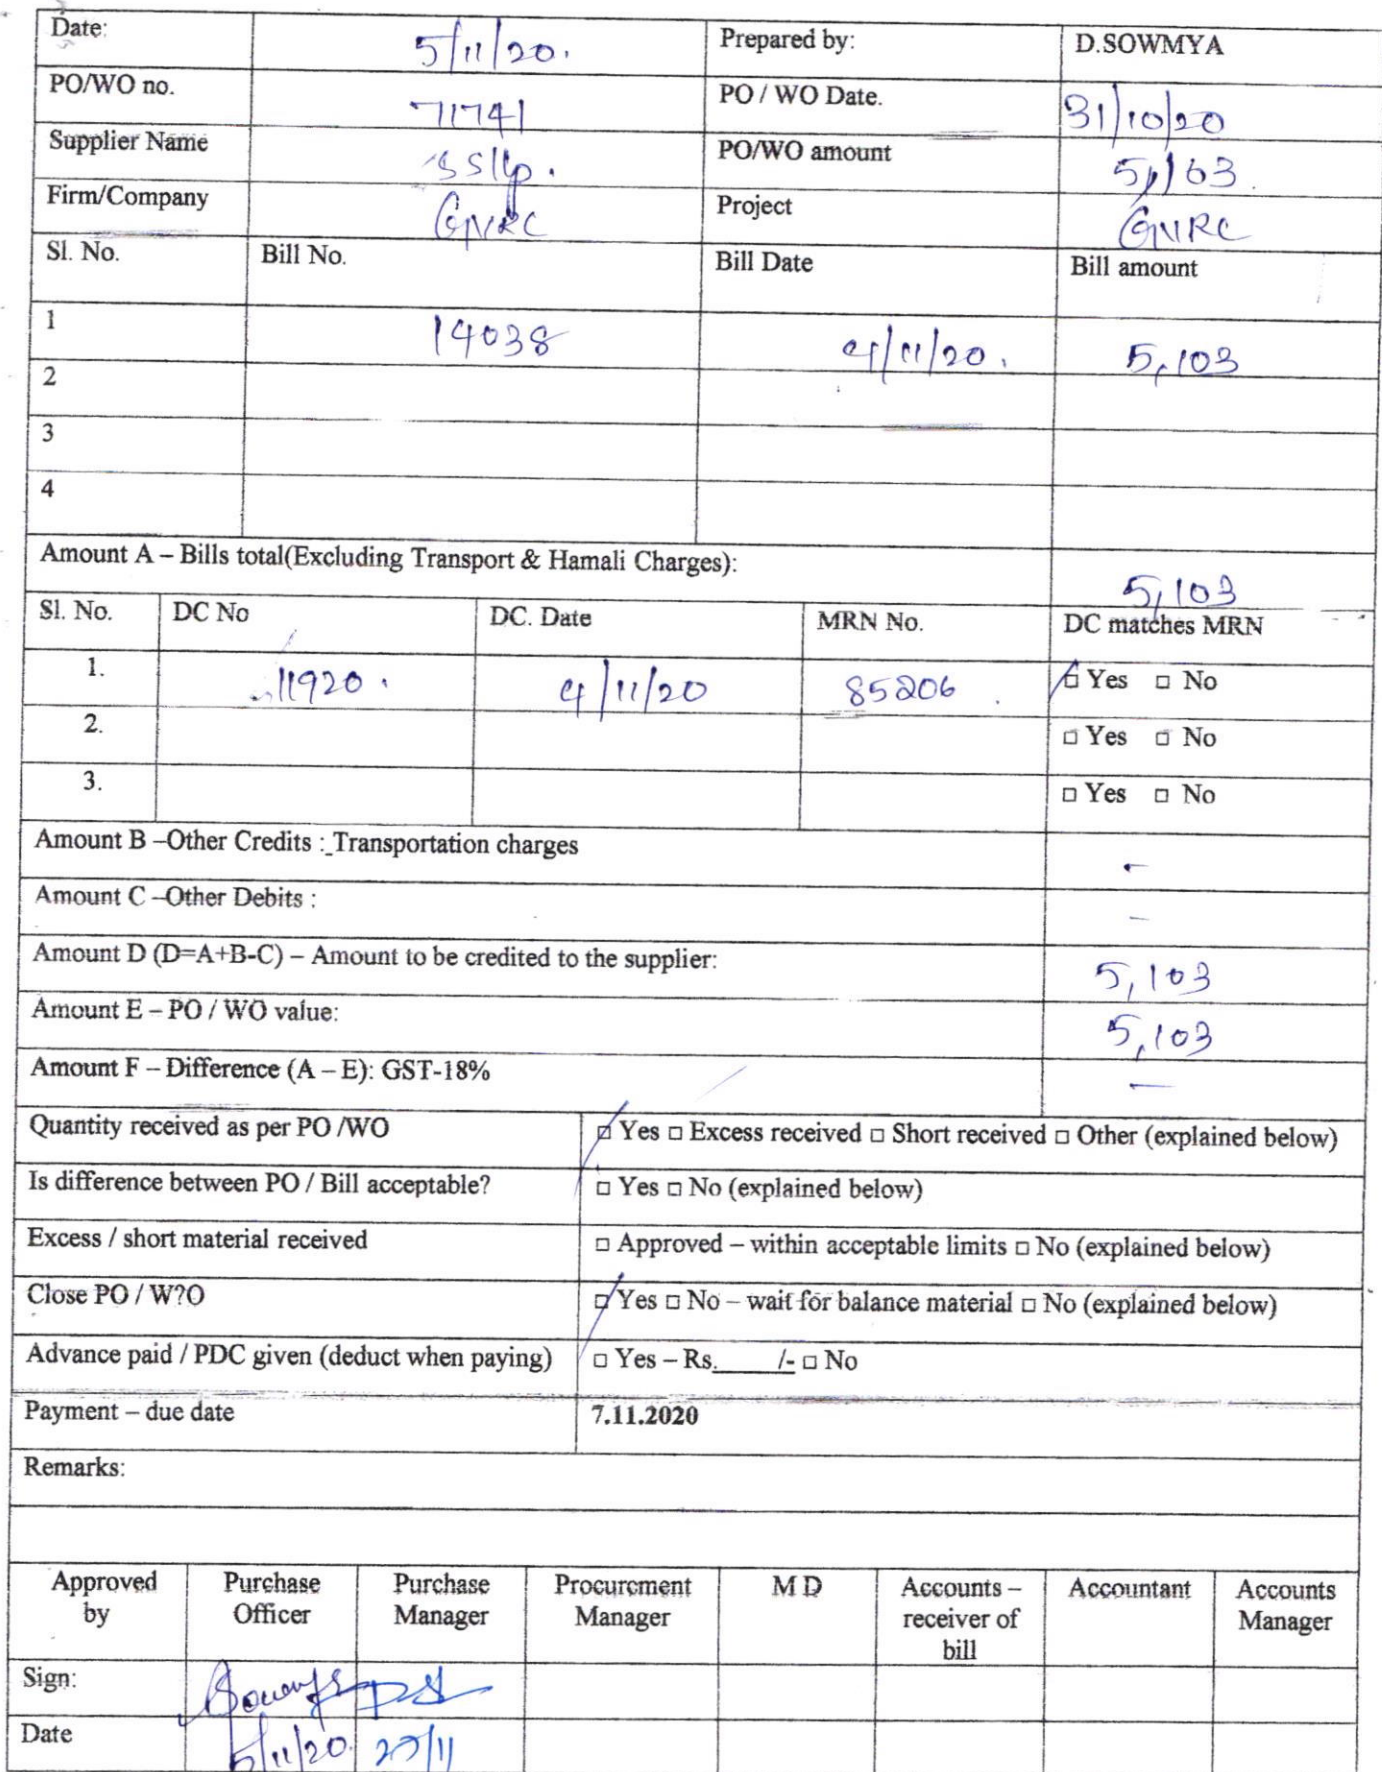 Date: 5/11/20. Prepared by: D.SOWMYA
PO/WO no. 71741 PO / WO Date. 31/10/20
Supplier Name SSllp. PO/WO amount 5,103.
Firm/Company GNRC Project GNRC
Sl. No. Bill No. Bill Date Bill amount
1 14038 4/11/20. 5,103
2
3
4
Amount A – Bills total(Excluding Transport & Hamali Charges): 5,103
Sl. No. DC No DC. Date MRN No. DC matches MRN
1. 11920. 4/11/20 85206 ☑ Yes □ No
2. □ Yes □ No
3. □ Yes □ No
Amount B –Other Credits : Transportation charges -
Amount C –Other Debits : -
Amount D (D=A+B-C) – Amount to be credited to the supplier: 5,103
Amount E – PO / WO value: 5,103
Amount F – Difference (A – E): GST-18% -
Quantity received as per PO /WO ☑ Yes □ Excess received □ Short received □ Other (explained below)
Is difference between PO / Bill acceptable? □ Yes □ No (explained below)
Excess / short material received □ Approved – within acceptable limits □ No (explained below)
Close PO / W?O ☑ Yes □ No – wait for balance material □ No (explained below)
Advance paid / PDC given (deduct when paying) □ Yes – Rs.____/- □ No
Payment – due date 7.11.2020
Remarks:
Approved by Purchase Officer Purchase Manager Procurement Manager M D Accounts – receiver of bill Accountant Accounts Manager
Sign: Sowmya
Date 5/11/20. 27/11